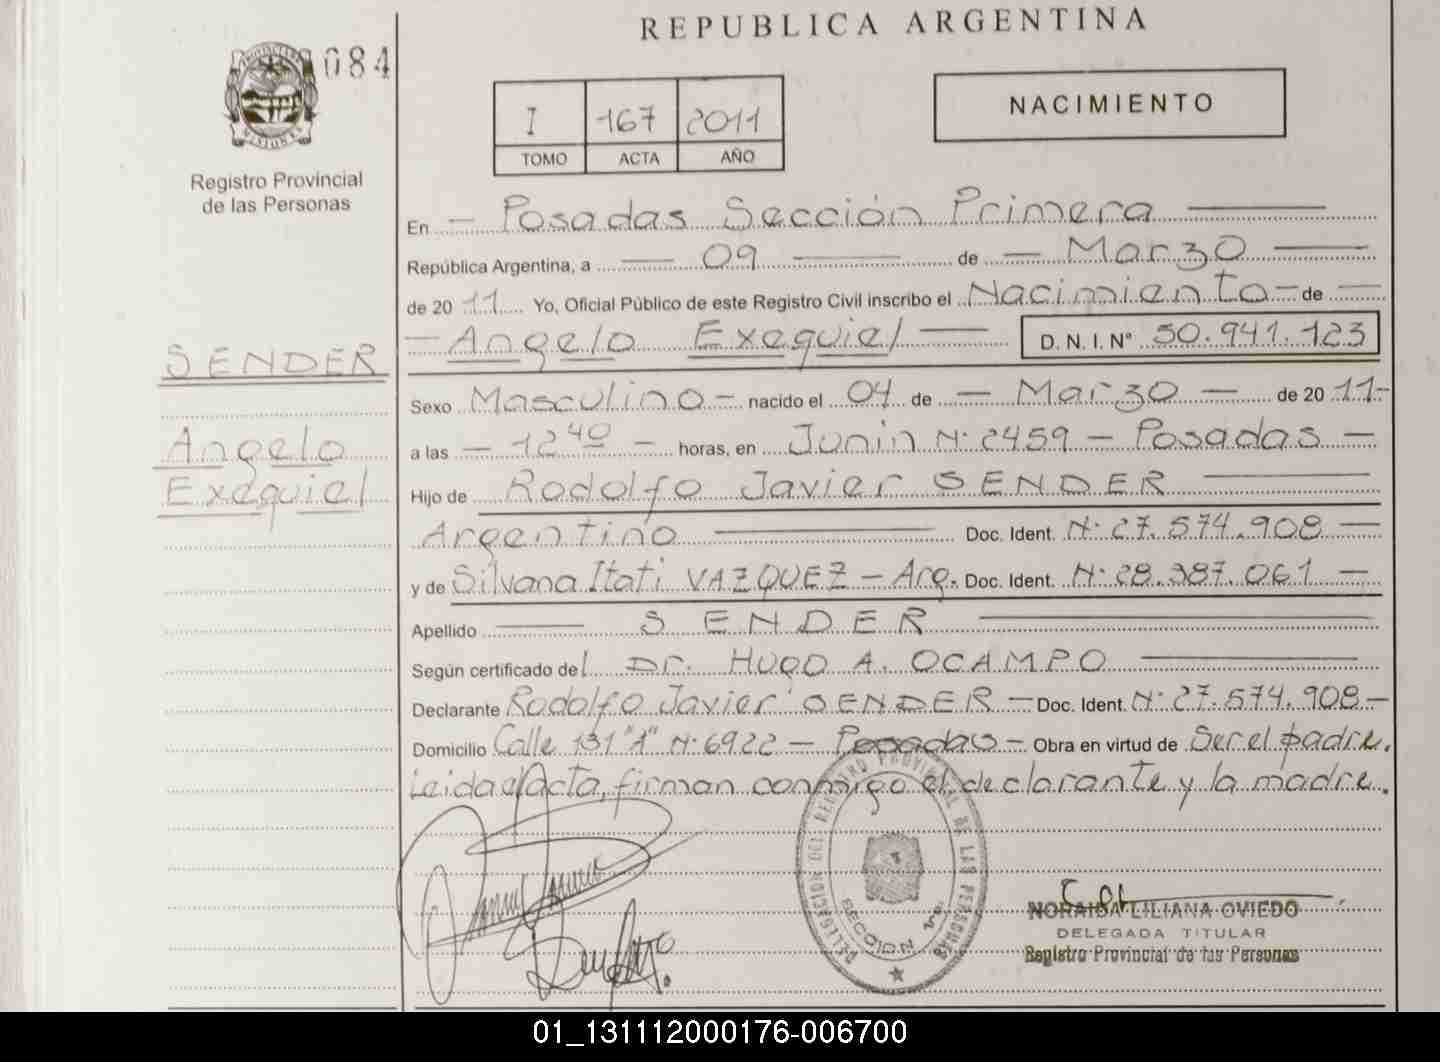 REPUBLICA ARGENTINA
084
I 167 2011
TOMO ACTA AÑO
NACIMIENTO
Registro Provincial
de las Personas
En - Posadas Sección Primera
República Argentina, a 09 de Marzo
de 2011 Yo, Oficial Público de este Registro Civil inscribo el Nacimiento - de
Angelo Exequiel D. N. I. Nº 50.941.123
SENDER
Angelo
Exequiel
Sexo Masculino - nacido el 04 de - Marzo - de 2011-
a las - 12 40 - horas, en Junin N: 2459 - Posadas -
Hijo de Rodolfo Javier SENDER
Argentino Doc. Ident. N: 27.574.908 -
y de Silvana Itati VAZQUEZ - Arg. Doc. Ident. N: 28.387.061 -
Apellido SENDER
Según certificado del Dr. HUGO A. OCAMPO
Declarante Rodolfo Javier SENDER - Doc. Ident. N: 27.574.908 -
Domicilio Calle 131 "A" N: 6922 - Posadas - Obra en virtud de Ser el padre.
Leida el Acta, firman conmigo el declarante y la madre.
DELEGACION DEL REGISTRO PROVINCIAL DE LAS PERSONAS
SECCION 1ª
NORAIDA LILIANA OVIEDO
DELEGADA TITULAR
Registro Provincial de las Personas
01_131112000176-006700